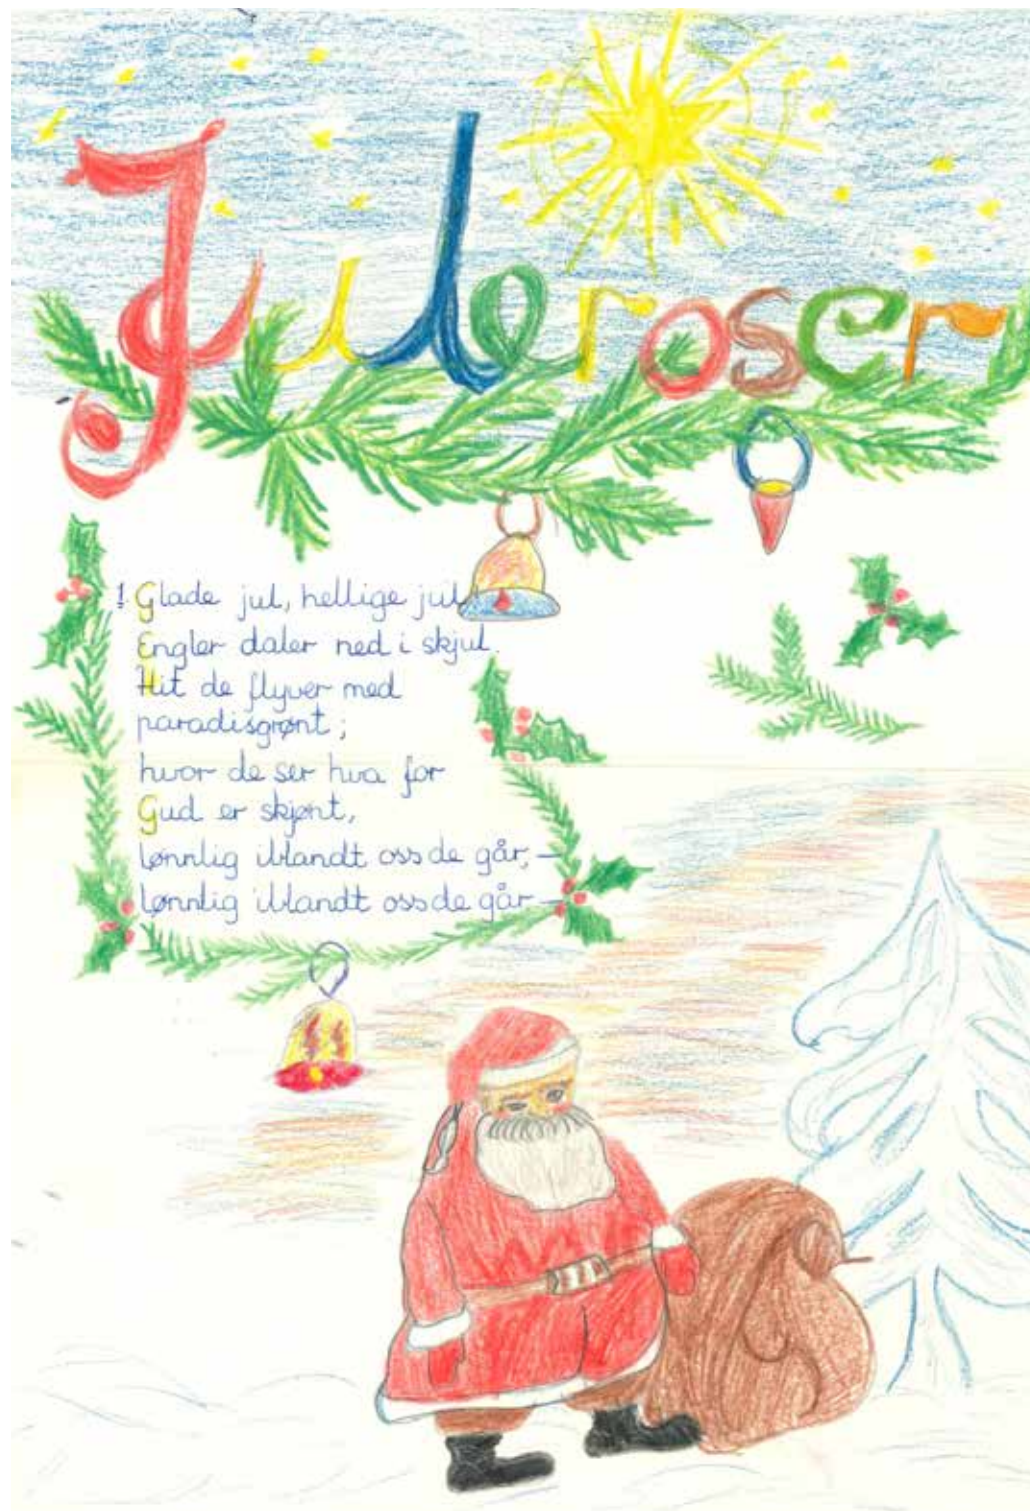 Juleroser
1. Glade jul, hellige jul!
Engler daler ned i skjul.
Hit de flyver med
paradisgrønt;
hvor de ser hva for
Gud er skjønt,
lønnlig iblandt oss de går, –
lønnlig iblandt oss de går –